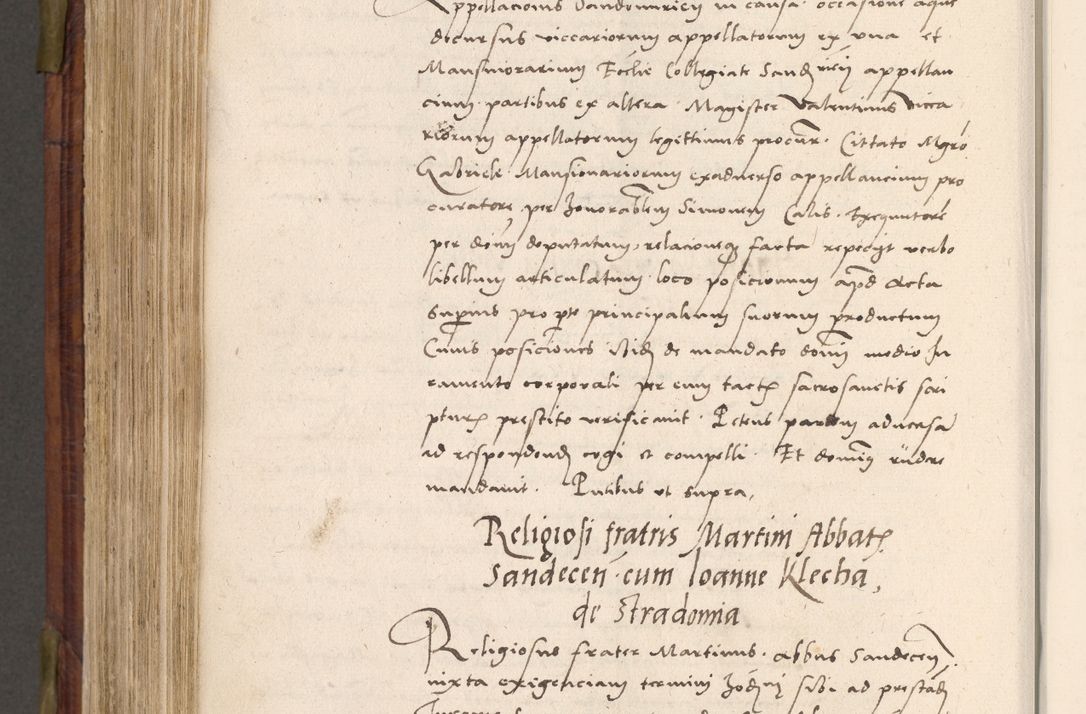 Appellacionis Sandomirien in causa occasione aque
decursus viccariorum appellatorum ex una et
Mansionariorum Ecclie Collegiate Sandomirien appellan
cium partibus ex altera. Magister Valentinus Vicca
riorum appellatorum legittimus procur. Cittato Mgro
Gabriele Mansionariorum exadverso appellancium pro
curatore, per honorabilem Simonem Calis Exequutore
per domi deputatum, relacioneq facta repeciit verbo
libellum articulatum loco posicionum apud Acta
Superius pro parte principalium suorum productum
Cuius posiciones Ibid de mandato domi medio Iu
ramento corporali per eum tactis sacrosanctis scri
pturis prestito verificavit. Petens partem adversa
ad respondend cogi et compelli. Et dominus ridere
mandavit. Pntibus ut supra,
Religiosi fratris Martini Abbatis
Sandecen cum Ioanne Klecha,
de Stradomia
Religiosus frater Martinus Abbas Sandecen,
iuxta exigenciam termini hodierni sibi ad prestand